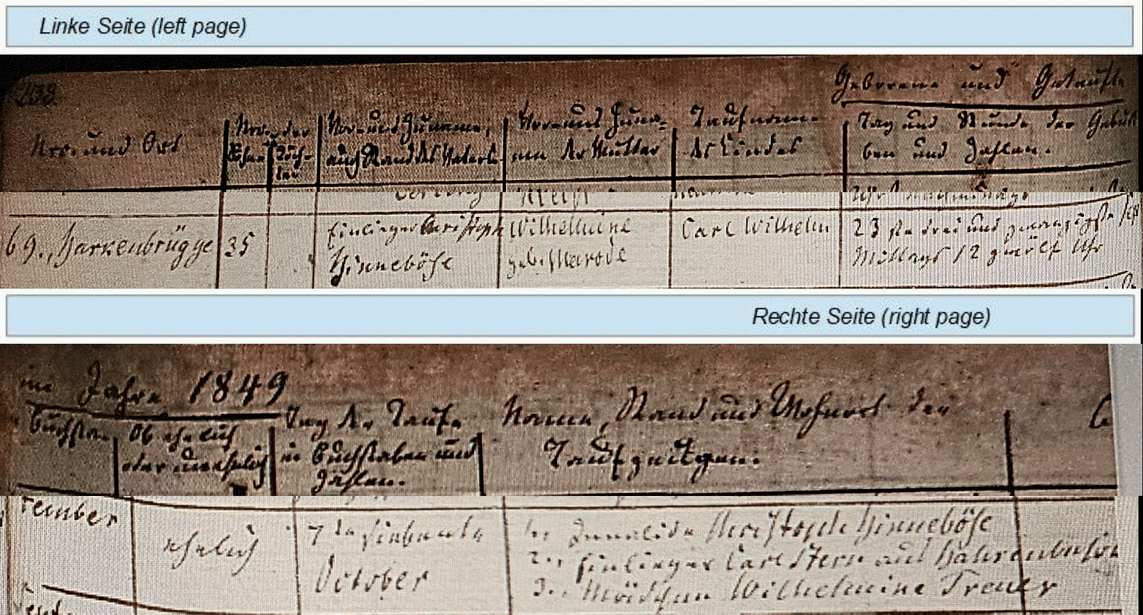 Linke Seite (left page)
238.
Geborene und Getaufte
Nro. und Ort
Nro. der
Söhne
Töch-
ter
Vor- und Zuname,
auch Stand des Vaters.
Vor- und Zuna-
me der Mutter
Taufname
des Kindes
Tag und Stunde der Geburt
ben und Zahlen.
69., Harkenbrügge
35
Einlieger Christoph
Hinneböse
Wilhelmine
geb. Merode
Carl Wilhelm
23 ste drei und zwanzigste
Mittags 12 zwölf Uhr
Rechte Seite (right page)
im Jahre 1849
Buchsta-
Ob ehelich
oder unehelich
Tag der Taufe
in Buchstaben und
Zahlen.
Name, Stand und Wohnort der
Taufzeugen.
tember
ehelich
7 te siebente
October
1., Christoph Hinneböse
2., Einlieger Carl Stern aus
3., Mädchen Wilhelmine Treuer